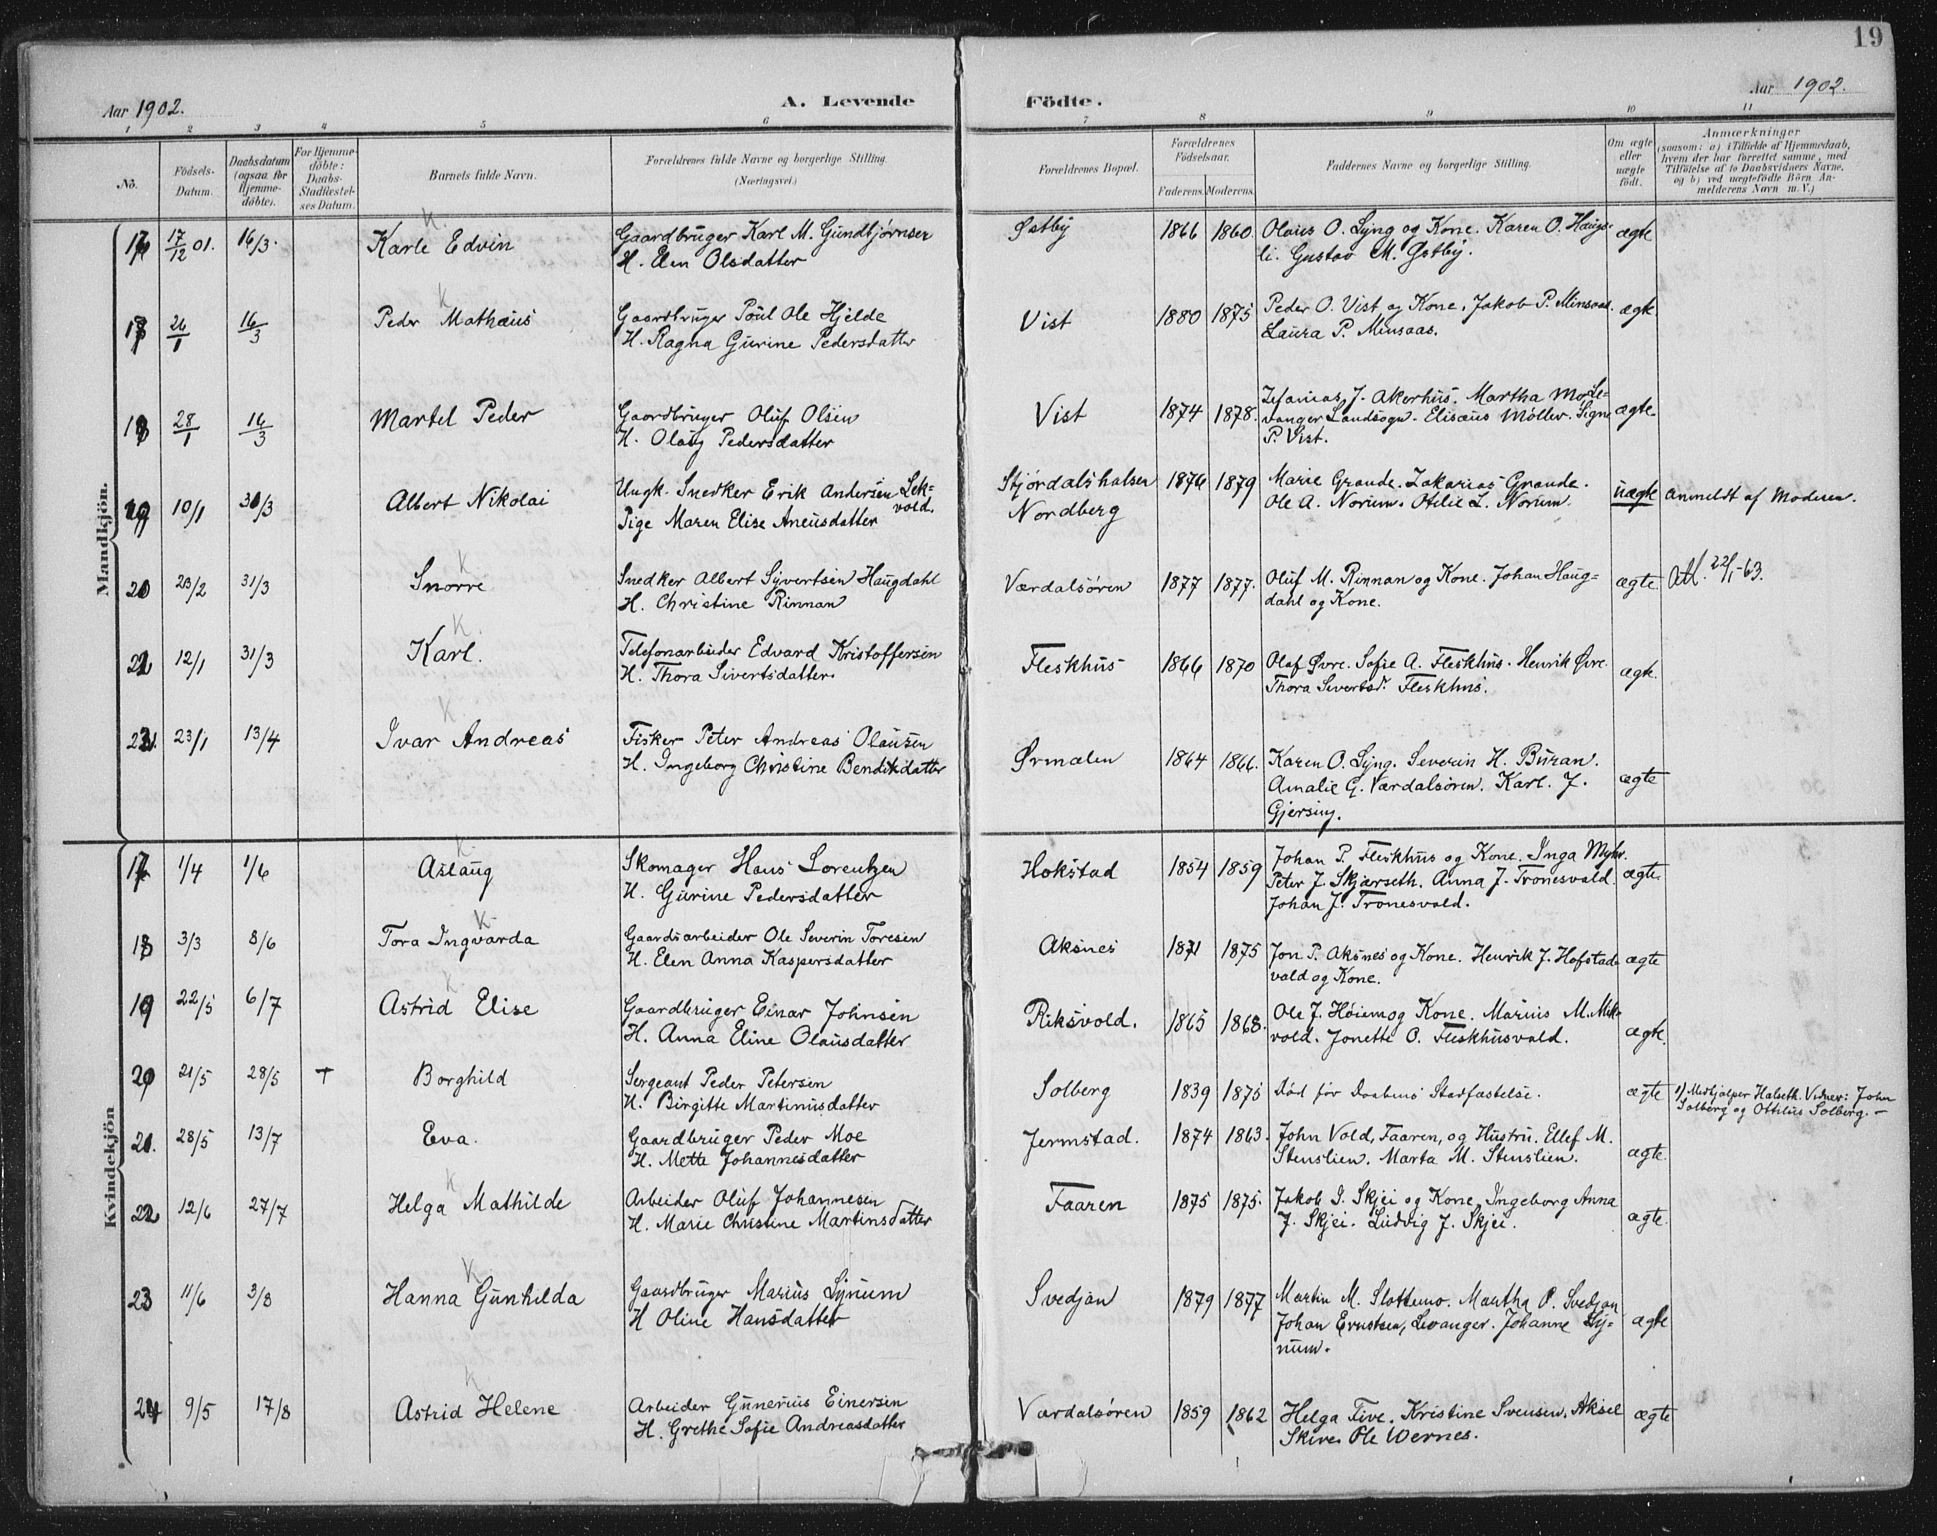 19
Aar 1902.
A. Levende Födte.
Aar 1902.
1 2 3 4 5 6 7 8 9 10 11
No.
Födsels-
Datum.
Daabsdatum
(ogsaa for
Hjemme-
döbte).
For Hjemme-
döbte:
Daabs-
Stadfæstel-
ses Datum.
Barnets fulde Navn.
Forældrenes fulde Navne og borgerlige Stilling.
(Næringsvei.)
Forældrenes Bopæl.
Forældrenes
Födselsaar.
Faderens. Moderens.
Faddernes Navne og borgerlige Stilling.
Om ægte
eller
uægte
födt.
Anmærkninger
(saasom: a) i Tilfælde af Hjemmedaab,
hvem der har forrettet samme, med
Tilföielse af to Daabsvidners Navne,
og b) ved uægtefödte Börn An-
melderens Navn m. V.)
Mandkjön.
17/12 01. 16/3. Karle Edvin Gaardbruger Karl M. Gundbjørnsen Østby 1866 1860 Olaus O. Lyng og Kone. Karen O. Haugs- ægte
H. Elen Olsdatter li. Gustav M. Østby.
26/1 16/3 Peder Mathæus Gaardbruger Poul Ole Hjelde Vist 1880 1875 Peder O. Vist og Kone. Jakob P. Minsaas. ægte
H. Ragna Gurine Pedersdatter Laura P. Minsaas.
28/1 16/3 Martel Peder Gaardbruger Oluf Olsen Vist 1874 1878. J. Akerhus. Martha Mo Le- ægte
H. Olaug Pedersdatter vanger Landsogn. Elisæus Møller. Signe
P. Vist.
10/1 /3 Albert Nikolai Ungk. Snedker Erik Andersen Lek- Stjórdalshalsen 1876 1879 Marie Grande. Zakarias Grande. uægte Anmeldt af Moderen.
vold.
Pige Maren Elise Aneusdatter Nordberg Ole A. Norum. Otilie L. Norum.
20 23/2 31/3 Snorre Snedker Albert Syvertsen Haugdahl Værdalsøren 1877 1877. Oluf M. Rinnan og Kone. Johan Haug- ægte. Att. 22/1-63.
H. Christine Rinnan dahl og Kone.
12/1 31/3 Karl. Telefonarbeider Edvard Kristoffersen Fleskhus 1866 1870 Olaf Øvre. Sofie A. Fleskhus. Henrik Øvre. ægte.
H. Thora Sivertsdatter. Thora Sivertsd. Fleskhus.
23/1 13/4 Ivar Andreas Fisker Peter Andreas Olausen Ørmælen 1864 1866. Karen O. Lyng. Severin H. Buran. ægte
H. Ingeborg Christine Bendiksdatter Amalie G. Værdalsøren. Karl. J.
Gjersing.
Kvindekjön
1/4 1/6 Aslaug Skomager Hans Lorentzen Hokstad 1854 1859 Johan P. Fleskhus og Kone. Inga Myhr. ægte.
H. Gurine Pedersdatter Peter J. Skjærseth. Anna J. Tronesvald.
Johan J. Tronesvold.
3/3 8/6 Tora Ingvarda Gaardsarbeider Ole Severin Toresen Aksnes 1871 1875 Jon P. Aksnes og Kone. Henrik J. Hofstad- ægte
H. Elen Anna Kaspersdatter vald og Kone.
22/5 6/7 Astrid Elise Gaardbruger Einar Johnsen Riksvold. 1865 1868. Ole J. Høiem og Kone. Marius M. Mik- ægte.
H. Anna Eline Olausdatter vold. Jonette O. Fleskhusvald.
21/5 28/5 + Borghild Sergeant Peder Petersen Solberg 1839 1875 Død før Daabens Stadfæstelse. ægte 1) Medhjælper Halseth. Vidner: John
H. Birgitte Martinusdatter Solberg og Ottilus Solberg. –
28/5 13/7 Eva. Gaardbruger Peder Moe Jermstad. 1874 1863. John Vold, Faaren, og Hustru. Ellef M. ægte.
H. Mette Johannesdatter Stenslien. Marta M. Stenslien.
22 12/6 27/7 Helga Mathilde Arbeider Oluf Johannesen Faaren 1875 1875. Jakob I. Skjei og Kone, Ingeborg Anna ægte.
H. Marie Christine Martinsdatter J. Skjei. Ludvig J. Skjei.
23 11/6 3/8 Hanna Gunhilda Gaardbruger Marius Lynum Svedjan 1879 1877 Martin M. Slottemo. Martha P. Svedjan ægte
H Oline Hansdatter Johan Erntsen, Levanger. Johanne Ly-
num.
24 9/5 17/8 Astrid Helene Arbeider Gunerius Einersen Værdalsøren 1859 1862 Helga Five. Kristine Svensen. Aksel ægte
H. Grethe Sofie Andreasdatter Skive. Ole Wernes.